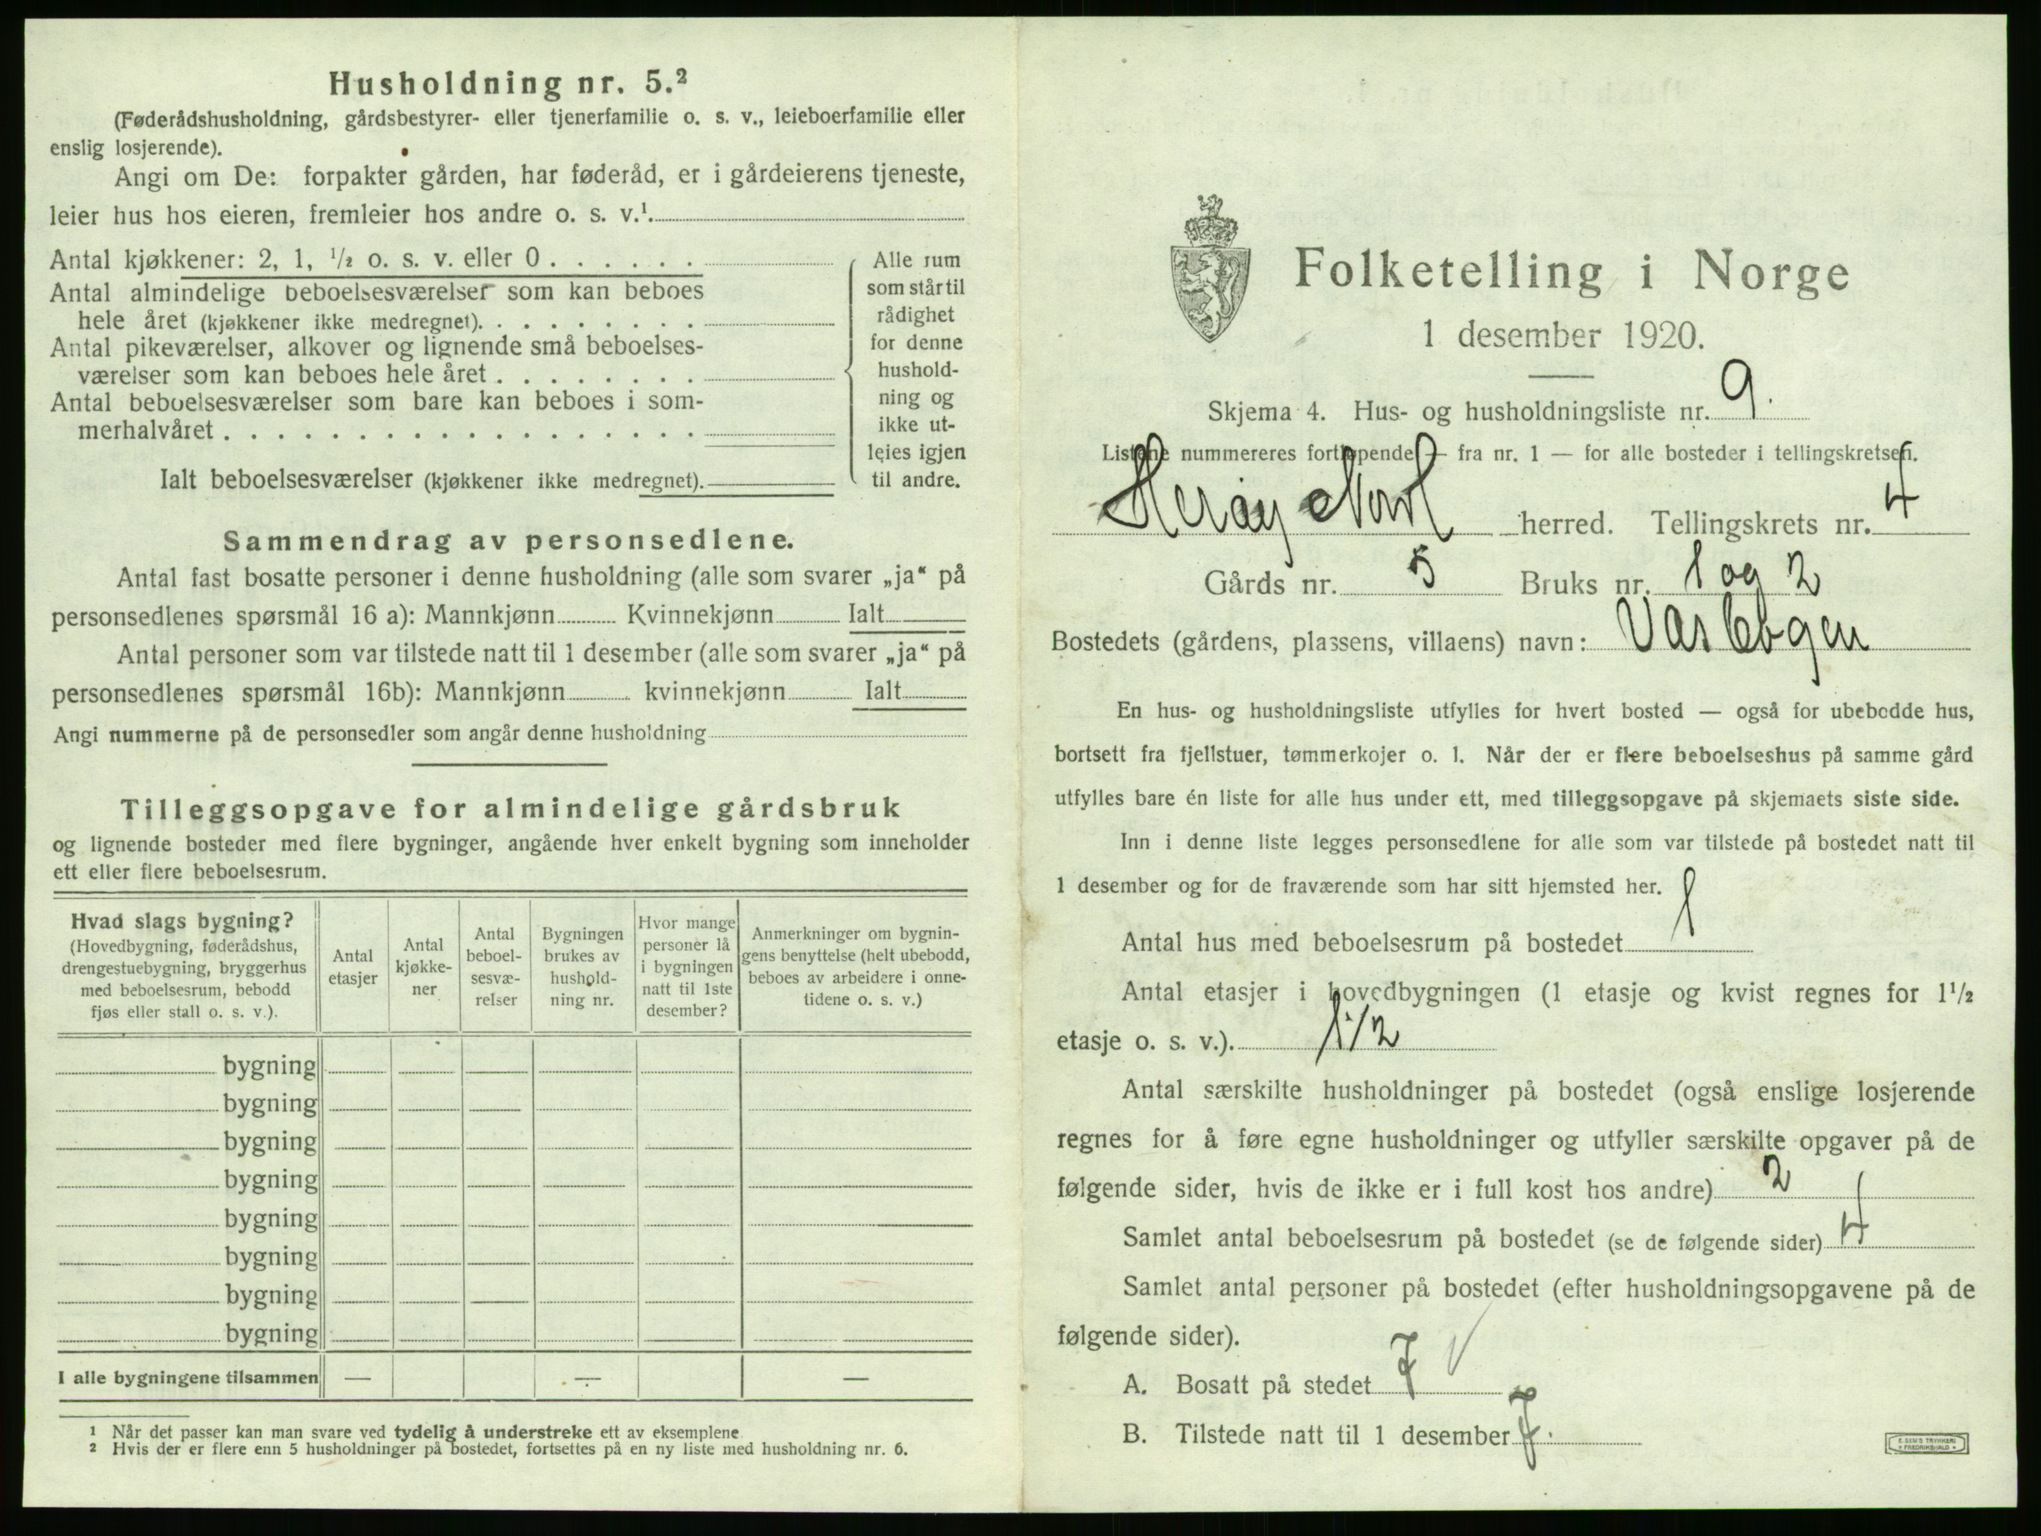 Husholdning nr. 5.²
(Føderådshusholdning, gårdsbestyrer- eller tjenerfamilie o. s. v., leieboerfamilie eller
enslig losjerende).
Angi om De: forpakter gården, har føderåd, er i gårdeierens tjeneste,
leier hus hos eieren, fremleier hos andre o. s. v.¹
Antal kjøkkener: 2, 1, ½ o. s. v. eller 0 . . . . . .
Antal almindelige beboelsesværelser som kan beboes
hele året (kjøkkener ikke medregnet). . . . . . . . .
Antal pikeværelser, alkover og lignende små beboelses-
værelser som kan beboes hele året . . . . . . . .
Antal beboelsesværelser som bare kan beboes i som-
merhalvåret . . . . . . . . . . . . . . . . . .
Ialt beboelsesværelser (kjøkkener ikke medregnet).
Alle rum
som står til
rådighet
for denne
hushold-
ning og
ikke ut-
leies igjen
til andre.
Sammendrag av personsedlene.
Antal fast bosatte personer i denne husholdning (alle som svarer „ja“ på
personsedlenes spørsmål 16 a): Mannkjønn Kvinnekjønn Ialt
Antal personer som var tilstede natt til 1 desember (alle som svarer „ja“ på
personsedlenes spørsmål 16b): Mannkjønn kvinnekjønn Ialt
Angi nummerne på de personsedler som angår denne husholdning
Tilleggsopgave for almindelige gårdsbruk
og lignende bosteder med flere bygninger, angående hver enkelt bygning som inneholder
ett eller flere beboelsesrum.
Hvad slags bygning?
(Hovedbygning, føderådshus,
drengestuebygning, bryggerhus
med beboelsesrum, bebodd
fjøs eller stall o. s. v.).
Antal
etasjer
Antal
kjøkke-
ner
Antal
beboel-
sesvæ-
relser
Bygningen
brukes av
hushold-
ning nr.
Hvor mange
personer lå
i bygningen
natt til 1ste
desember?
Anmerkninger om bygnin-
gens benyttelse (helt ubebodd,
beboes av arbeidere i onne-
tidene o. s. v.)
bygning
bygning
bygning
bygning
bygning
bygning
bygning
bygning
I alle bygningene tilsammen — — —
¹ Når det passer kan man svare ved tydelig å understreke ett av eksemplene
² Hvis der er flere enn 5 husholdninger på bostedet, fortsettes på en ny liste med husholdning nr. 6.
Folketelling i Norge
1 desember 1920.
Skjema 4. Hus- og husholdningsliste nr. 9.
Listene nummereres fortløpende — fra nr. 1 — for alle bosteder i tellingskretsen.
Herøy Nord herred. Tellingskrets nr. 4
Gårds nr. 5 Bruks nr. 1 og 2
Bostedets (gårdens, plassens, villaens) navn:
En hus- og husholdningsliste utfylles for hvert bosted — også for ubebodde hus,
bortsett fra fjellstuer, tømmerkojer o. l. Når der er flere beboelseshus på samme gård
utfylles bare én liste for alle hus under ett, med tilleggsopgave på skjemaets siste side.
Inn i denne liste legges personsedlene for alle som var tilstede på bostedet natt til
1 desember og for de fraværende som har sitt hjemsted her.
Antal hus med beboelsesrum på bostedet 1
Antal etasjer i hovedbygningen (1 etasje og kvist regnes for 1½
etasje o. s. v.). 1 1/2
Antal særskilte husholdninger på bostedet (også enslige losjerende
regnes for å føre egne husholdninger og utfyller særskilte opgaver på de
følgende sider, hvis de ikke er i full kost hos andre) 2
Samlet antal beboelsesrum på bostedet (se de følgende sider) 4
Samlet antal personer på bostedet (efter husholdningsopgavene på de
følgende sider).
A. Bosatt på stedet 7
B. Tilstede natt til 1 desember 7.
E. SEM'S TRYKKERI
FREDRIKSHALD